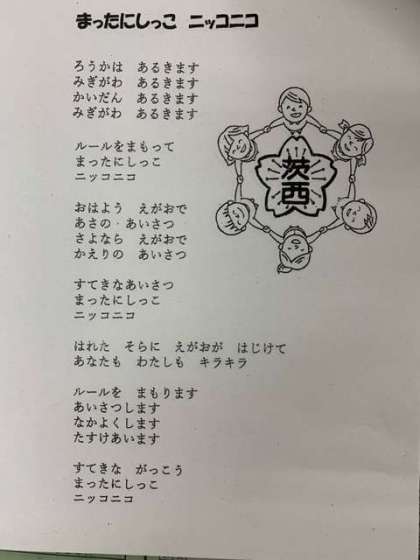 まったにしっこ　ニッコニコ
ろうかは　あるきます
みぎがわ　あるきます
かいだん　あるきます
みぎがわ　あるきます
ルールをまもって
まったにしっこ
ニッコニコ
おはよう　えがおで
あさの・あいさつ
さよなら　えがおで
かえりの　あいさつ
すてきなあいさつ
まったにしっこ
ニッコニコ
はれた　そらに　えがおが　はじけて
あなたも　わたしも　キラキラ
ルールを　まもります
あいさつします
なかよくします
たすけあいます
すてきな　がっこう
まったにしっこ
ニッコニコ
茨西